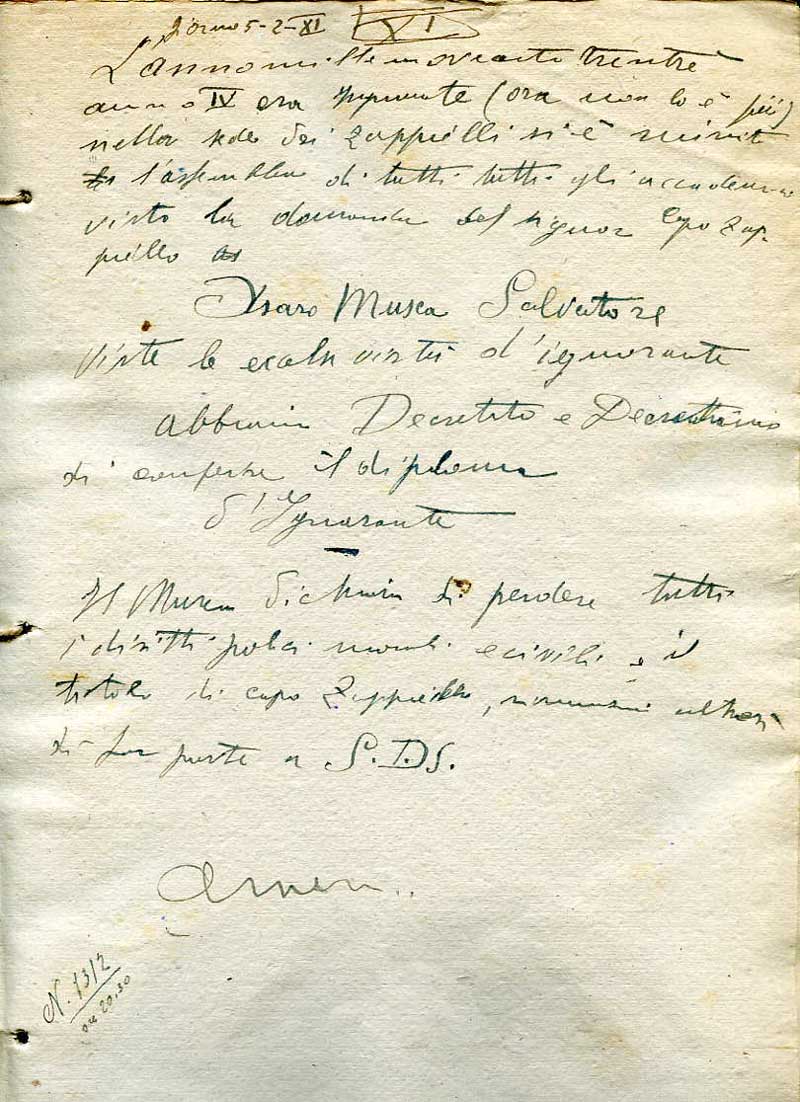 Giorno 5-2-XI XI
L'anno mille novecento trentre
anno IV era Ignorante (ora non lo è più)
nella sede dei Zappielli si è riunit
l'assemblea di tutti tutti gli accademici
visto la domanda del signor Capo Zap-
piello
Ysaro Musca Salvatore
viste le eccelse virtù d'ignorante
abbiam Decretato e Decretiamo
di conferire il diploma
d'Ignorante
Il Musca dichiara di perdere tutti
i diritti morali e civili e il
titolo di capo Zappiello, altresì
di far parte a S.D.S.
Amen..
N. 1312
ore 20,30